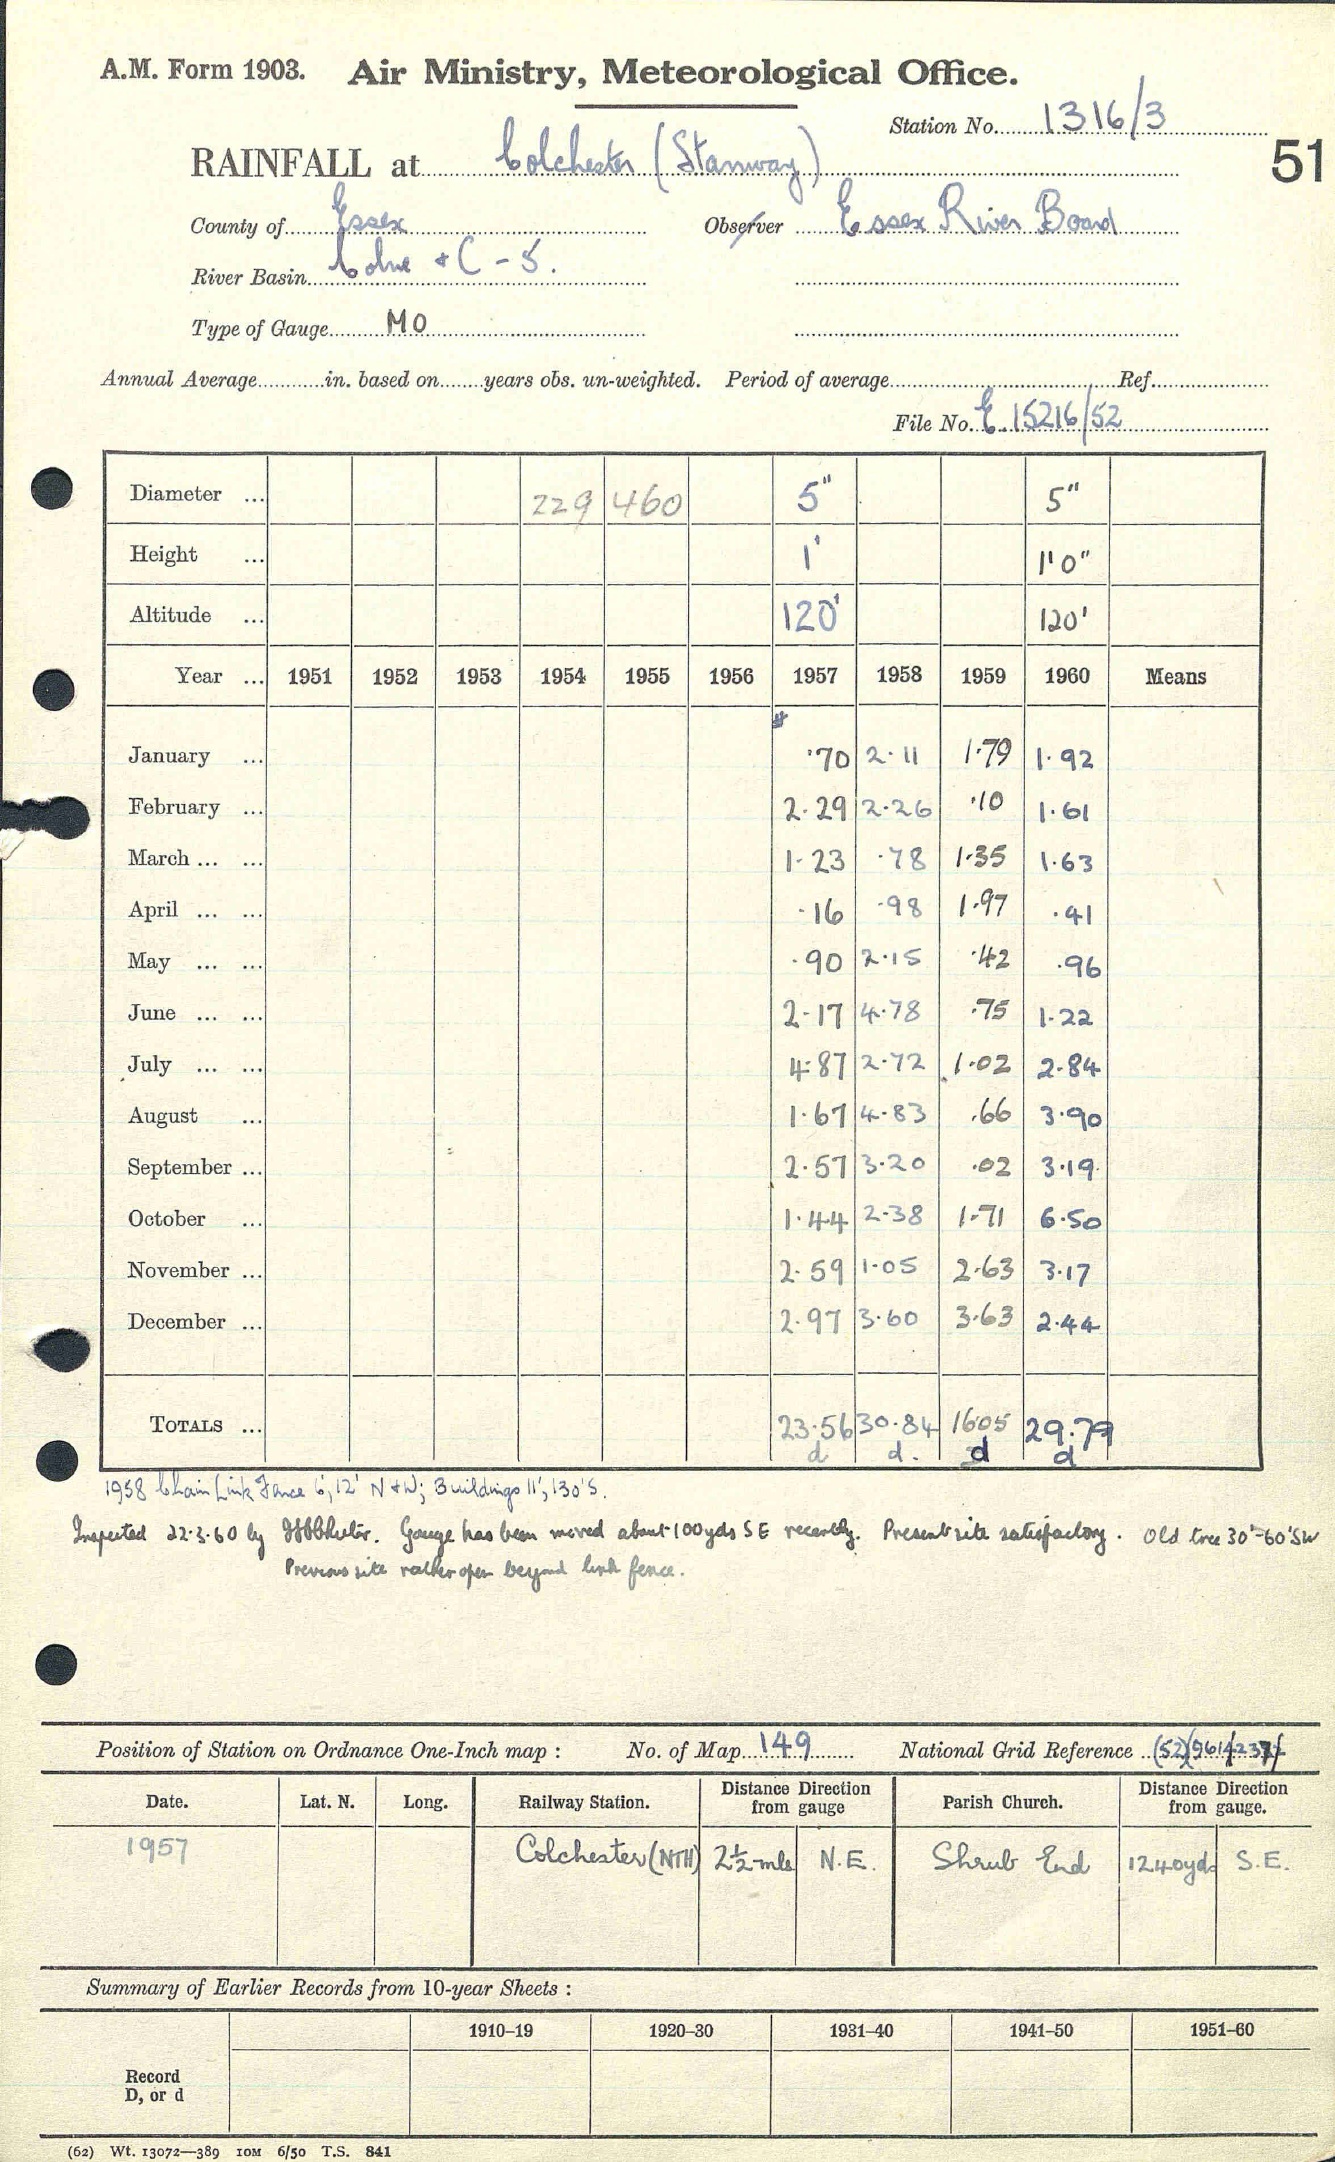 A.M. Form 1903. Air Ministry, Meteorological Office.
Station No. 1316/3
RAINFALL at Colchester (Stanway)
51
County of Essex Observer Essex River Board
River Basin Colne + C - 5.
Type of Gauge MO
Annual Average in. based on years obs. un-weighted. Period of average Ref.
File No. E.15216/52
Diameter ... 229 460 5" 5"
Height ... 1' 1'0"
Altitude ... 120' 120'
Year ... 1951 1952 1953 1954 1955 1956 1957 1958 1959 1960 Means
#
January ... ·70 2·11 1·79 1·92
February ... 2·29 2·26 ·10 1·61
March ... ... 1·23 ·78 1·35 1·63
April ... ... ·16 ·98 1·97 ·41
May ... ... ·90 2·15 ·42 ·96
June ... ... 2·17 4·78 ·75 1·22
July ... ... 4·87 2·72 1·02 2·84
August ... 1·67 4·83 ·66 3·90
September ... 2·57 3·20 ·02 3·19
October ... 1·44 2·38 1·71 6·50
November ... 2·59 1·05 2·63 3·17
December ... 2·97 3·60 3·63 2·44
TOTALS ... 23·56 30·84 1605 29·79
d d. d d
1958 Chain Link Fence 6', 12' N + W; Buildings 11', 130'S.
Inspected 22·3·60 by Gauge has been moved about 100yds SE recently. Present site satisfactory. Old tree 30'-60'SW
Previous site rather open beyond link fence.
Position of Station on Ordnance One-Inch map : No. of Map 149 National Grid Reference (52)
Date. Lat. N. Long. Railway Station. Distance Direction from gauge Parish Church. Distance Direction from gauge.
1957 Colchester (NTH) 2½ mls N.E. Shrub End 1240yds S.E.
Summary of Earlier Records from 10-year Sheets :
1910–19 1920–30 1931–40 1941–50 1951–60
Record
D, or d
(62) Wt. 13072—389 10M 6/50 T.S. 841